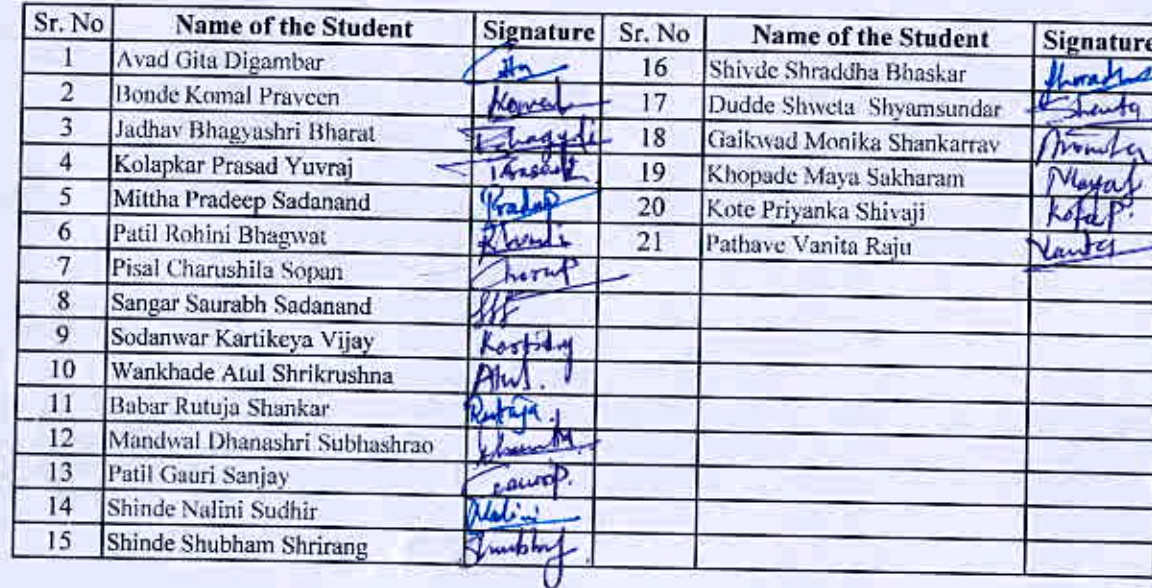 Sr. No Name of the Student Signature Sr. No Name of the Student Signature
1 Avad Gita Digambar 16 Shivde Shraddha Bhaskar
2 Bonde Komal Praveen Komal 17 Dudde Shweta Shyamsundar Shweta
3 Jadhav Bhagyashri Bharat 18 Gaikwad Monika Shankarrav
4 Kolapkar Prasad Yuvraj 19 Khopade Maya Sakharam
5 Mittha Pradeep Sadanand 20 Kote Priyanka Shivaji Kote P.
6 Patil Rohini Bhagwat 21 Pathave Vanita Raju
7 Pisal Charushila Sopan
8 Sangar Saurabh Sadanand
9 Sodanwar Kartikeya Vijay
10 Wankhade Atul Shrikrushna Atul.
11 Babar Rutuja Shankar Rutuja
12 Mandwal Dhanashri Subhashrao
13 Patil Gauri Sanjay
14 Shinde Nalini Sudhir Nalini
15 Shinde Shubham Shrirang